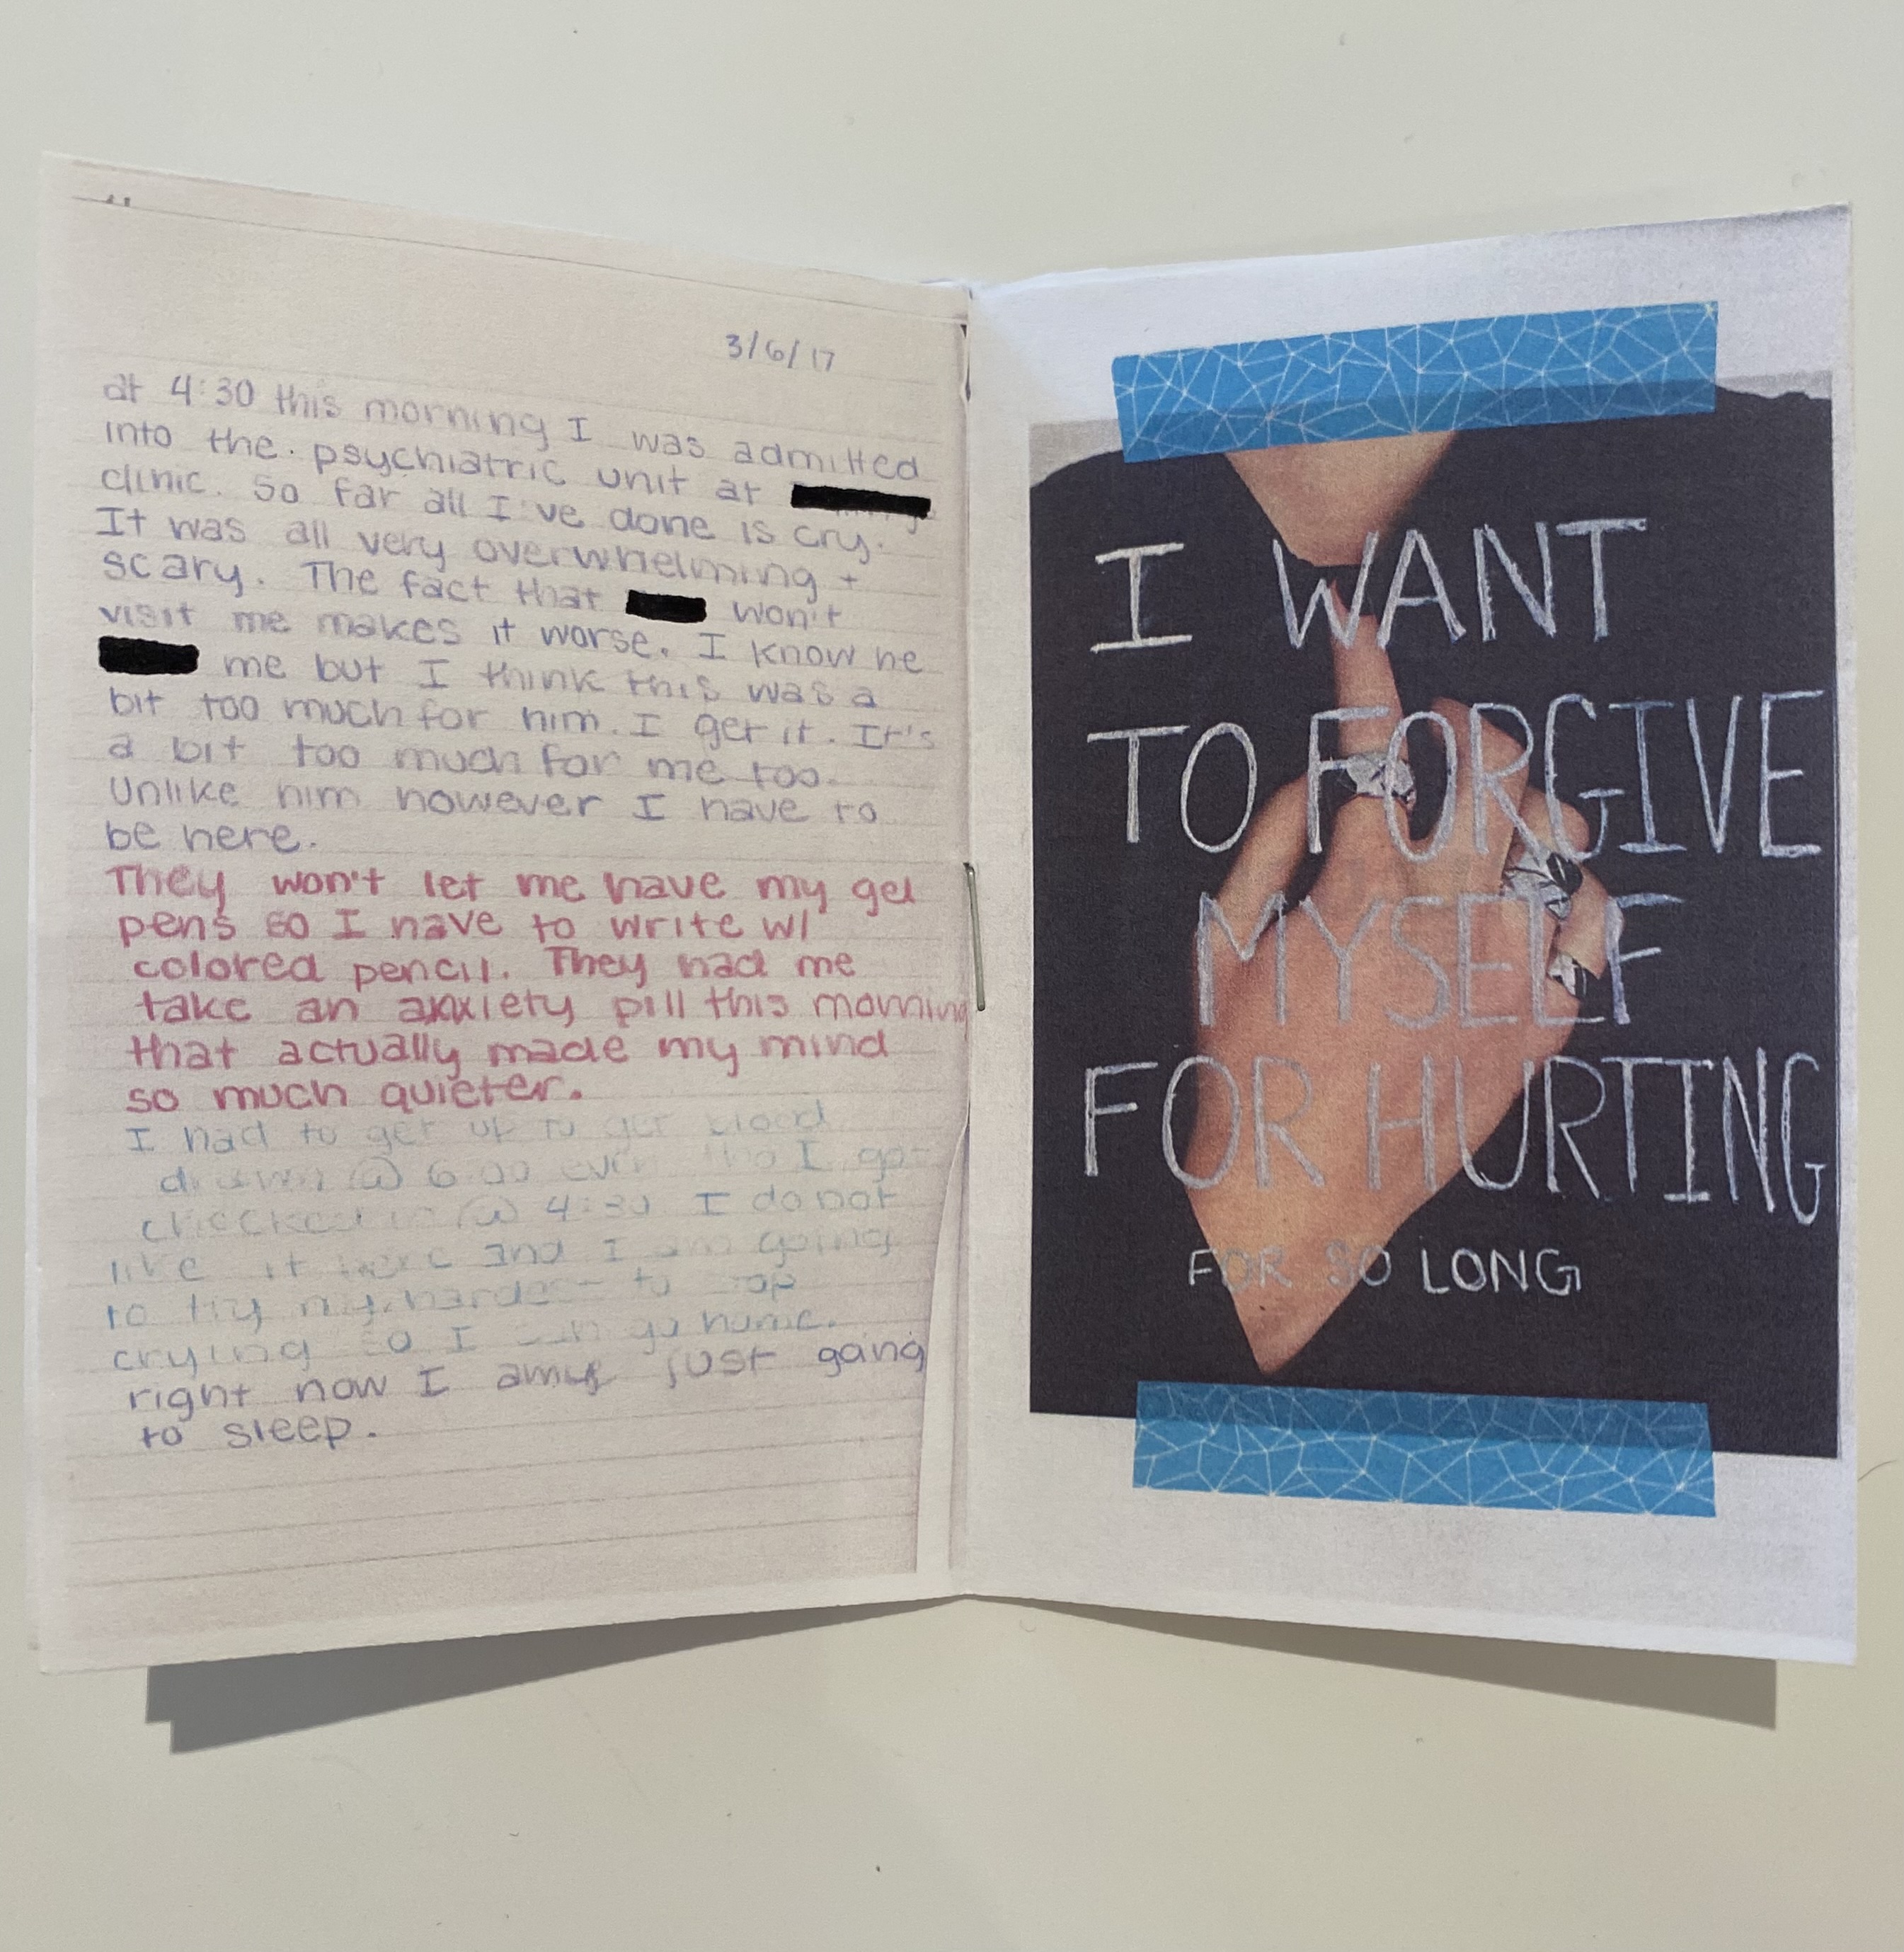 3/6/17
at 4:30 this morning I was admitted
into the psychiatric unit at
clinic. So far all I've done is cry.
It was all very overwhelming +
scary. The fact that won't
visit me makes it worse. I know he
me but I think this was a
bit too much for him. I get it. It's
a bit too much for me too.
Unlike him however I have to
be here.
They won't let me have my gel
pens so I have to write w/
colored pencil. They had me
take an anxiety pill this morning
that actually made my mind
so much quieter.
I had to get up to get blood
drawn @ 6:00 even tho I got
checked in @ 4:30 I do not
like it here and I am going
to try my hardest to stop
crying so I can go home.
right now I am just going
to sleep.
I WANT
TO FORGIVE
MYSELF
FOR HURTING
FOR SO LONG